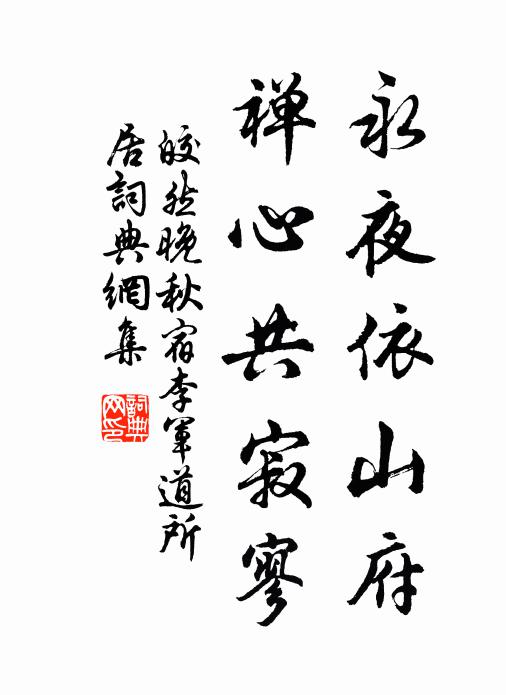 永夜依山府
禅心共寂寥
皎然晚秋宿李軍道所
居詞典網集
詞典
网印